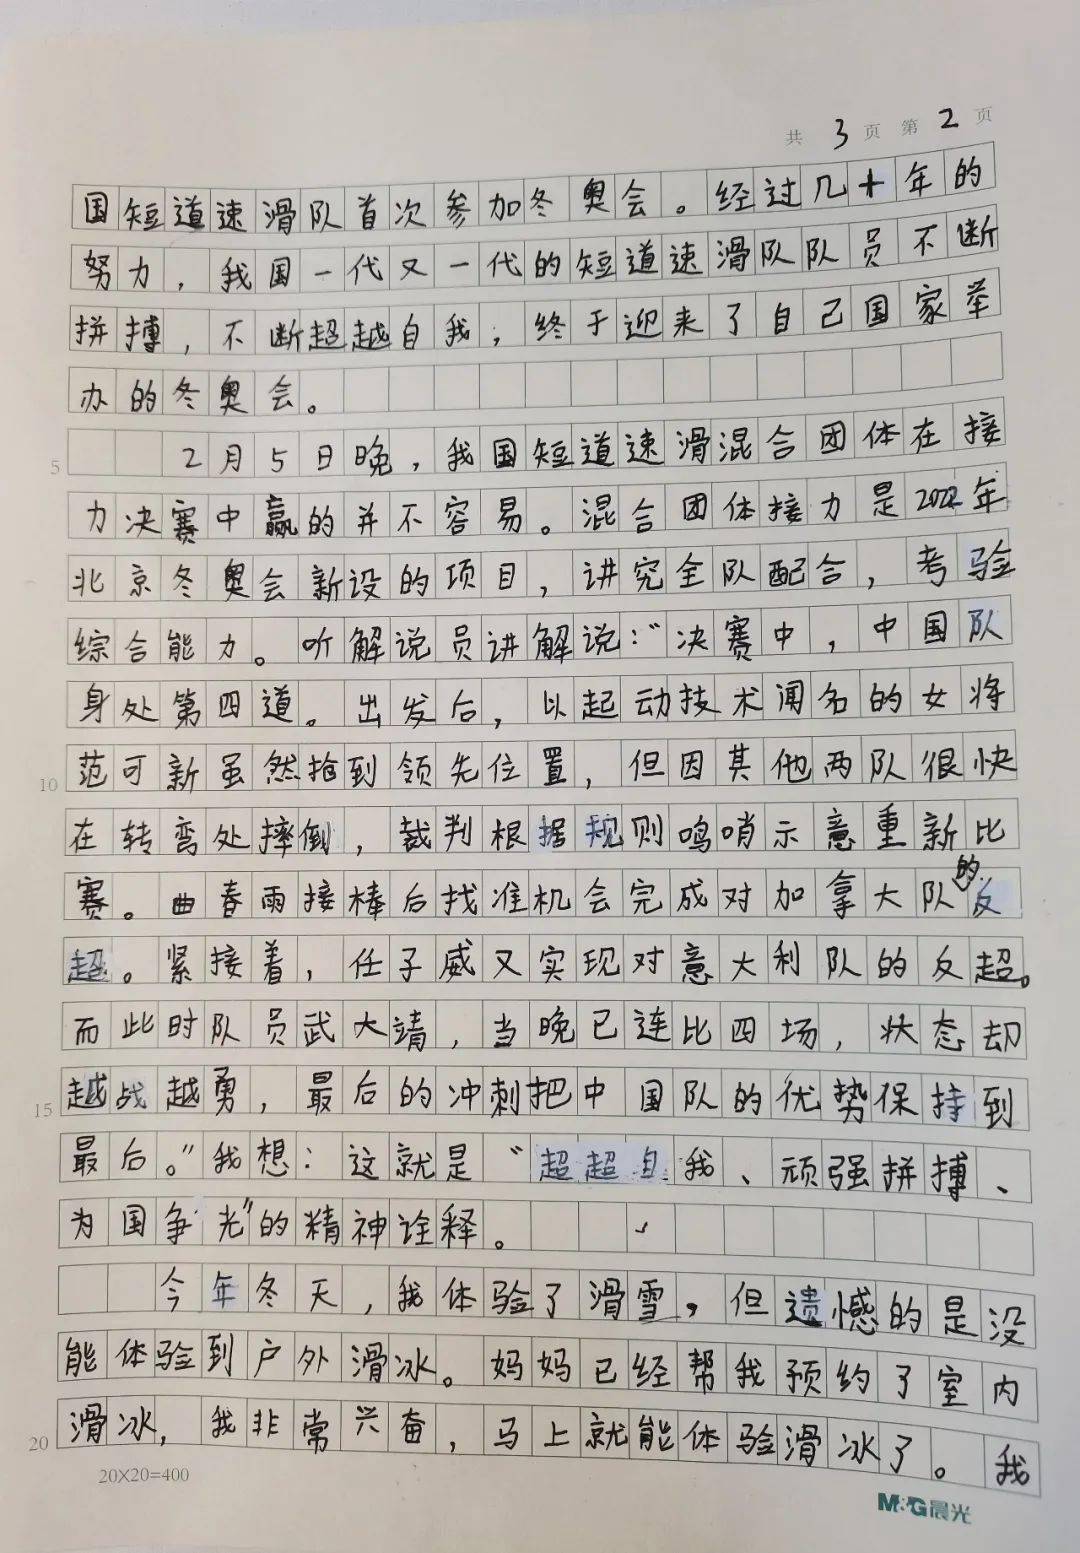 共 3 页 第 2 页
国短道速滑队首次参加冬奥会。经过几十年的
努力，我国一代又一代的短道速滑队队员不断
拼搏，不断超越自我，终于迎来了自己国家举
办的冬奥会。
5 2月5日晚，我国短道速滑混合团体在接
力决赛中赢的并不容易。混合团体接力是2022年
北京冬奥会新设的项目，讲究全队配合，考验
综合能力。听解说员讲解说：“决赛中，中国队
身处第四道。出发后，以起动技术闻名的女将
10 范可新虽然抢到领先位置，但因其他两队很快
在转弯处摔倒，裁判根据规则鸣哨示意重新比
赛。曲春雨接棒后找准机会完成对加拿大队的反
超。紧接着，任子威又实现对意大利队的反超。
而此时队员武大靖，当晚已连比四场，状态却
15 越战越勇，最后的冲刺把中国队的优势保持到
最后。”我想：这就是“超超自我、顽强拼搏、
为国争光”的精神诠释。
今年冬天，我体验了滑雪，但遗憾的是没
能体验到户外滑冰。妈妈已经帮我预约了室内
20 滑冰，我非常兴奋，马上就能体验滑冰了。我
20X20=400
M&G晨光